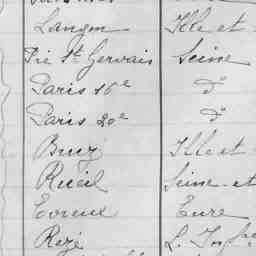 Langon Ille et
Pré St Gervais Seine
Paris 16e d°
Paris 20e d°
Bruz Ille et
Rueil Seine et
Evreux Eure
Rezé L. Infre